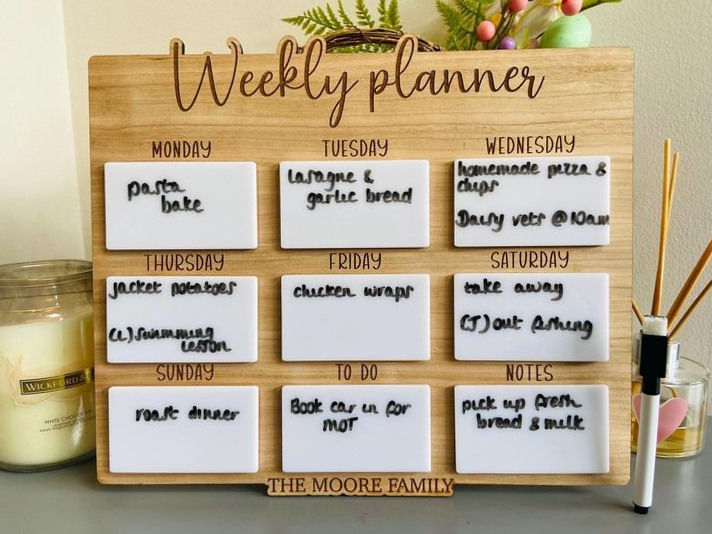 Weekly planner
MONDAY
pasta
bake
TUESDAY
lasagne &
garlic bread
WEDNESDAY
homemade pizza &
chips
Daisy vets @ 10am
THURSDAY
jacket potatoes
(L) swimming
lesson
FRIDAY
chicken wraps
SATURDAY
take away
(J) out fishing
SUNDAY
roast dinner
TO DO
Book car in for
MOT
NOTES
pick up fresh
bread & milk
THE MOORE FAMILY
WHITE CHOCOLATE